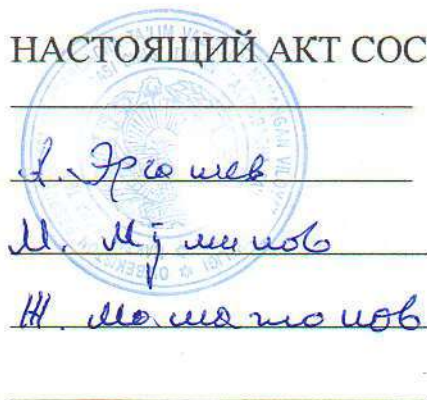 НАСТОЯЩИЙ АКТ СОС
А. Эргашев
М. Мўминов
Ж. Маматтопов